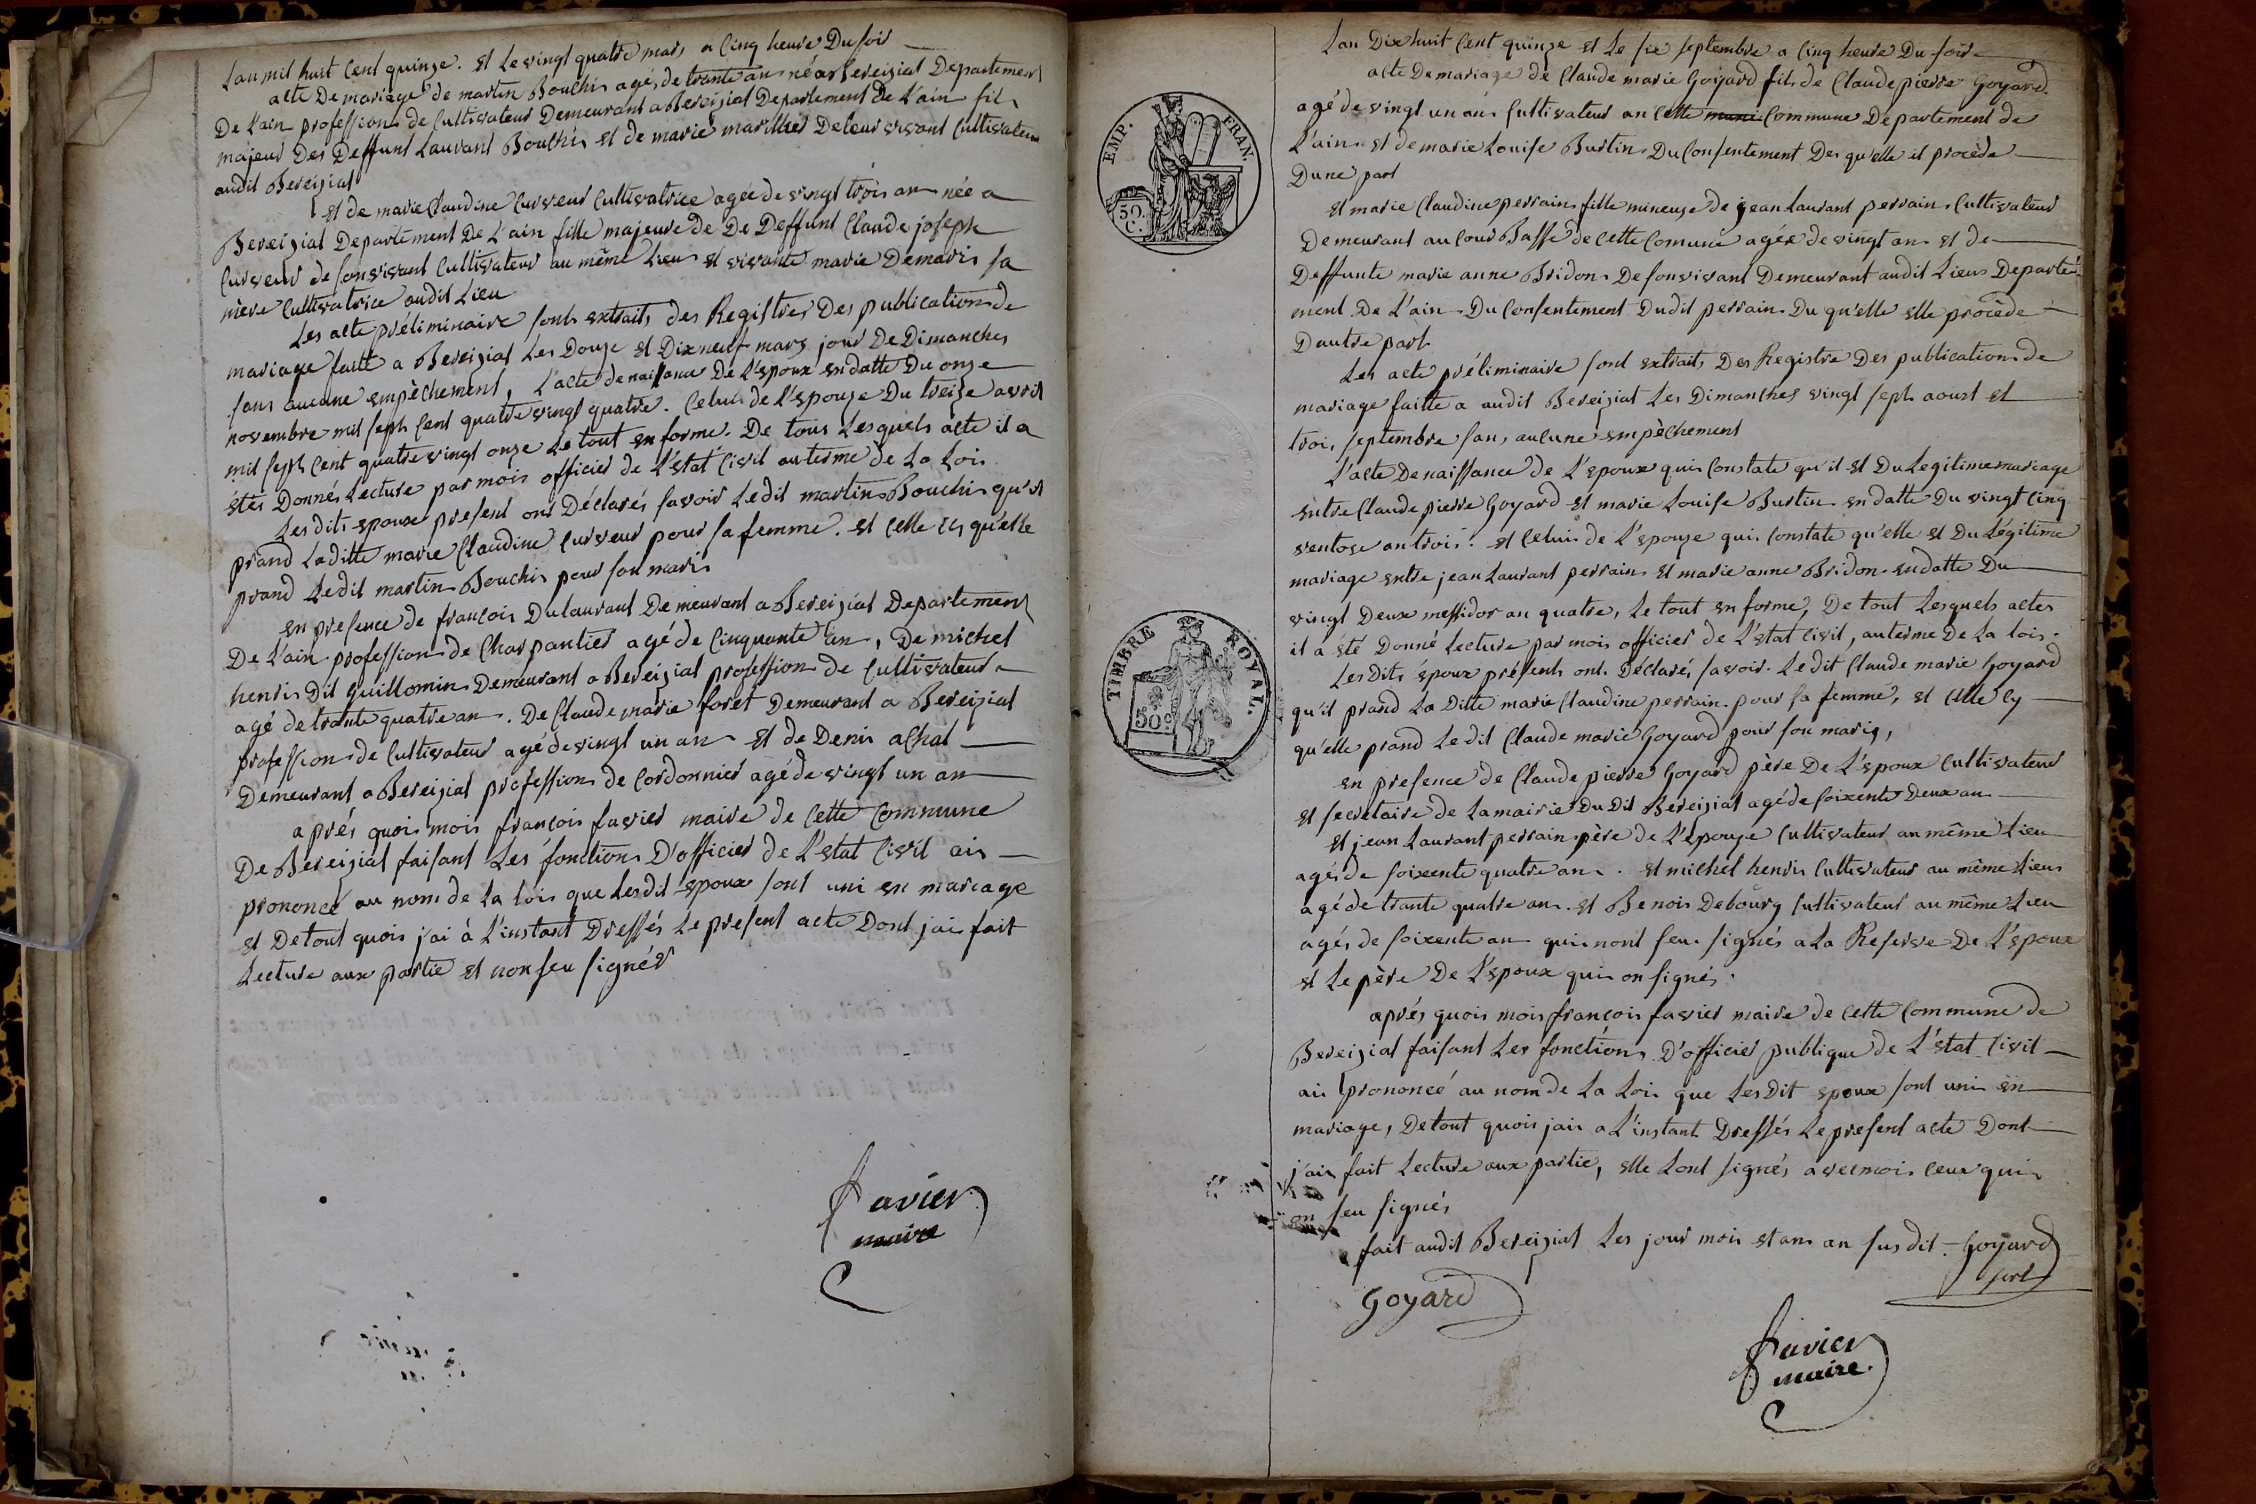 Lan mil huit Cent quinze. Et Le vingt quatre mars a Cinq heure Du soir
acte De mariage de martin Bouchis agés de trante an né a Bereiziat Departement
De Lain profession de Cultivateur Demeurant a Bereiziat Departement De L'ain fils
majeur Des Deffunt Laurant Bouchis et de marie marillier De leur vivant Cultivateur
audit Bereiziat
Et de marie Claudine Curveur Cultivatrice agée de vingt trois an née a
Bereiziat Departement De L'ain fille majeure de De Deffunt Claude joseph
Curveur de son vivant Cultivateur au même Lieu et vivante marie Demaris sa
mère Cultivatrice audit Lieu
Les acte préliminaire sont extraits des Registres Des publication de
mariage faitte a Bereiziat Les Douze et Dix neuf mars jour De Dimanches
sans aucune empêchement, L'acte de naissance De L'epoux en datte Du onze
novembre mil sept Cent quatre vingt quatre. Celui de L'epouze Du treize avril
mil sept Cent quatre vingt onze Le tout en forme. De tous Lesquels acte il a
étés Donnés Lecture par mois officier de L'état Civil au terme de La Lois
Les dits epoux present ont Déclarés savoir Ledit martin Bouchis qu'il
prand La ditte marie Claudine Curveur pour sa femme. et celle cy qu'elle
prand Ledit martin Bouchis pour son maris
en presence de françois Dulaurant Demeurant a Bereiziat Departement
De L'ain profession de Charpantier agé de Cinquante an, De michel
henris Dit Guillomin Demeurant a Bereiziat profession de Cultivateur
agé de trante quatre an. De Claude marie foret Demeurant a Bereiziat
profession de Cultivateur agé de vingt un an et de Denis achat
Demeurant a Bereiziat profession de Cordonnier agé de vingt un an
aprés quois mois françois favier maire de Cette Commune
De Bereiziat faisant Les fonctions D'officier de L'état Civil ais
prononcé au nom de La Lois que Lesdit epoux sont uni en mariage
et De tout quois j'ai à L'instant Dressés Le present acte Dont j'ai fait
Lecture aux partie et non seu signér
favier
maire
EMP. FRAN.
50 C.
TIMBRE ROYAL.
50c
Lan Dix huit Cent quinze et Le six septembre a Cinq heure Du soir
acte De mariage de Claude marie Goyard fils de Claude pierre Goyard
agé de vingt un an Cultivateur an Cette Commune Departement de
L'ain et de marie Louise Burtin Du Consentement Des qu'elle il procède
Dune part
Et marie Claudine perrain fille mineuze de jean Laurant perrain Cultivateur
Demeurant au Cour Basse de Cette Comune agée de vingt an et de
Deffunte marie anne Bridon De son vivant Demeurant audit Lieu Departé
ment De L'ain Du Consentement Dudit perrain Du qu'elle elle procède
Dautre part
Les acte préliminaire sont extraits Des Registre Des publication de
mariage faitte a audit Bereiziat Les Dimanches vingt sept aoust et
trois septembre sans aucune empêchement
L'acte De naissance de L'epoux quis Constate qu'il et Du Legitime mariage
entre Claude pierre Goyard et marie Louise Burtin en datte Du vingt Cinq
ventose an trois. et Celui de L'epouze quis Constate qu'elle et Du Légitime
mariage entre jean Laurant perrain et marie anne Bridon en datte Du
vingt Deux messidor an quatre, Le tout en forme, De tout Lesquels actes
il a été Donné Lecture par mois officier de L'état Civil, au terme De La lois.
Les Dits époux présents ont Déclarés savoir. Ledit Claude marie Goyard
qu'il prand La Ditte marie Claudine perrain pour sa femme, et Celle Cy
qu'elle prand Ledit Claude marie Goyard pour son maris,
en presence de Claude pierre Goyard père De L'epoux Cultivateur
et secretaire de La mairie Du Dit Bereiziat agé de soixente Deux an
et jean Laurant perrain père de L'épouze Cultivateur au même Lieu
agés de soixente quatre an. et michel henris Cultivateur au même Lieu
agé de trante quatre an. et Benois Debourg Cultivateur au même Lieu
agés de soixente an quis nont seu signés a La Reserve De L'epoux
et Le père De L'epoux quis on signés.
aprés quois mois françois favier maire de Cette Commune de
Bereiziat faisant Les fonctions D'officier publique de L'état Civil
ais prononcé au nom de La Lois que Les Dit epoux sont unis en
mariage, De tout quois jais a L'instant Dressés Le present acte Dont
j'ais fait Lecture aux partie, elle Lont signés avec mois Ceux quis
on seu signés
fait audit Bereiziat Les jour mois et ans an susdit. Goyard
Goyard
favier
maire